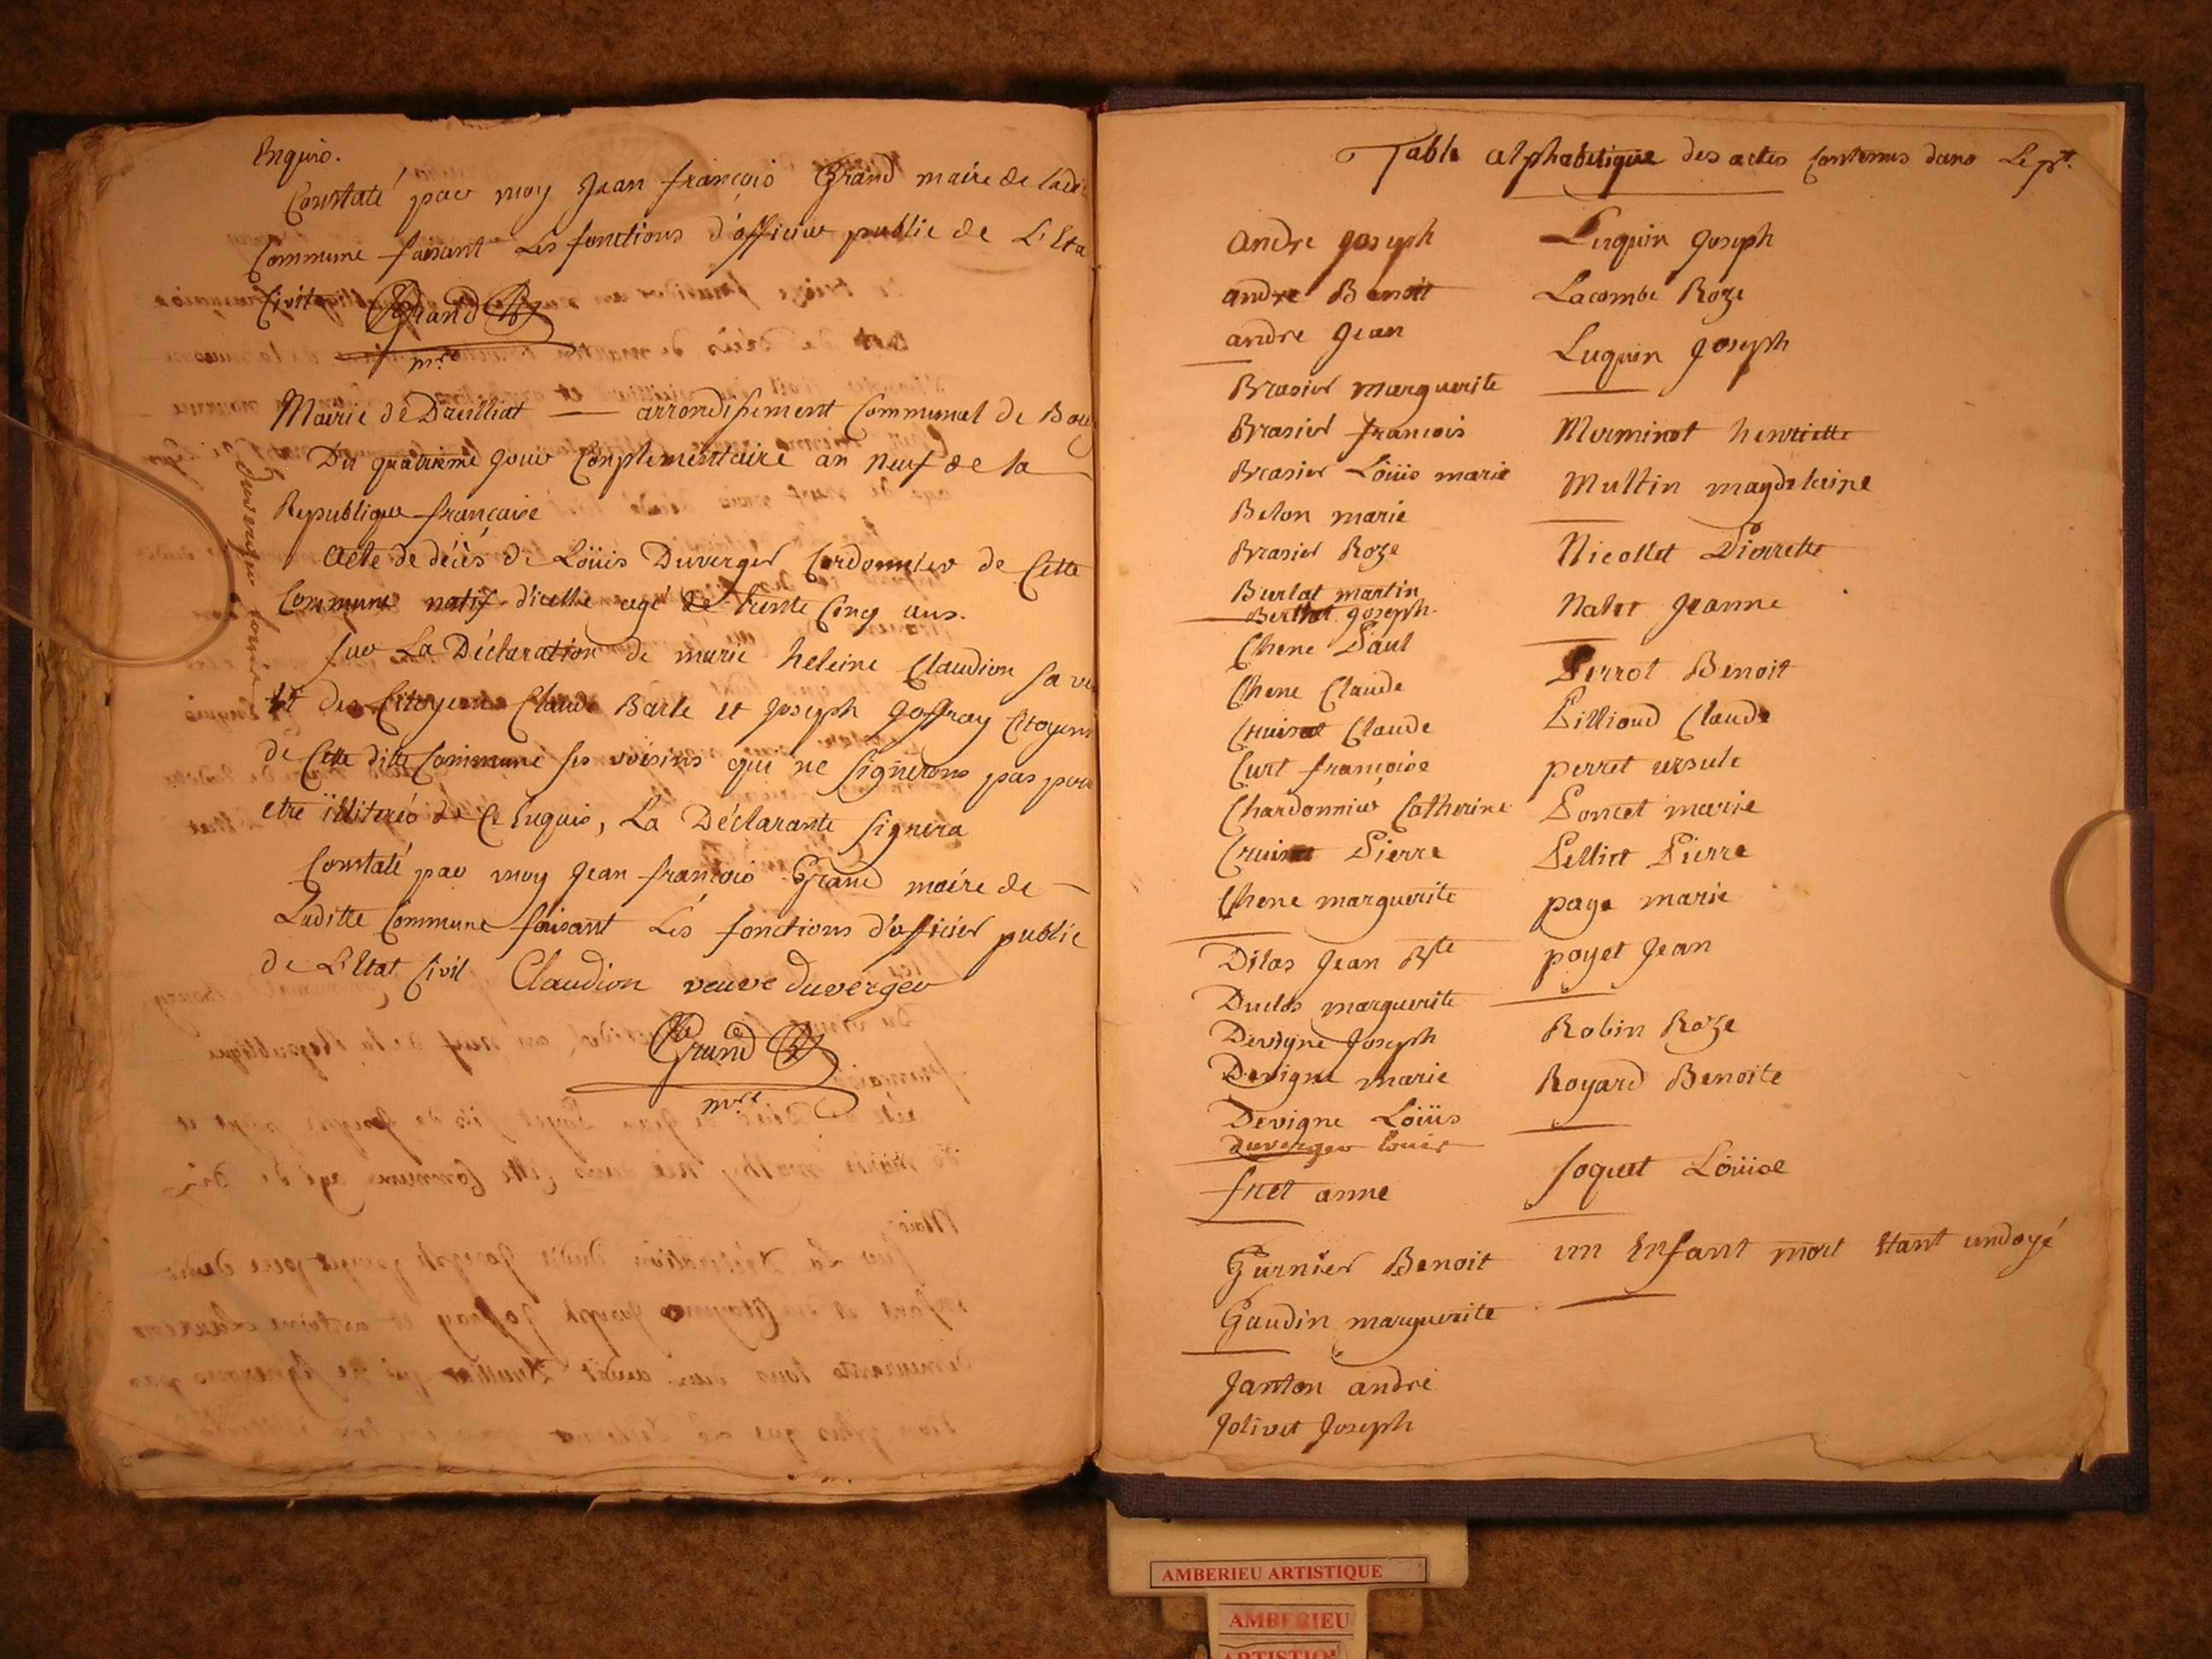 Enquis.
Constaté par moy Jean françois Grand maire de ladi
Commune faisant Les fonctions d'officier public de L'Eta
Civil Grand
mre
Mairie de Druilliat — arrondissement Communal de Bou
Du quatrieme jour Complementaire an Neuf de la
Republique française
Duverger Louis
Acte de décès de Loüis Duverger Cordonnier de Cette
Commune natif d'icelle agé de trente Cinq ans.
sur La Déclaration de marie heleine Claudion sa ve
et des Citoyens Claude Barle et Joseph Joffray Citoyens
de Cette ditte Commune ses voisins qui ne signerons pas pour
etre illiterés de Ce Enquis, La Déclarante signera
Constaté par moy Jean françois Grand maire de —
Laditte Commune faisant Les fonctions d'officier public
de L'Etat Civil Claudion veuve duverger
Grand
mre
Table alphabetique des actes Contenus dans Le pt.
andre Joseph
andre Benoit
andre Jean
Brasier marguerite
Brasier francois
Brasier Loüis marie
Belon marie
Brasier Roze
Burlat martin
Berthet Joseph.
Chene Paul
Chene Claude
Cruiset Claude
Curt françoise
Chardonnier Catherine
Cruiset Pierre
Chene marguerite
Dilas Jean Bte
Duclos marguerite
Devigne Joseph
Devigne marie
Devigne Loüis
duverger Louis
fret anne
Gurnier Benoit
Gaudin marguerite
Janton andre
Jolivet Joseph
Luquin Joseph
Lacombe Roze
Luquin Joseph
Merminot henriette
Multin magdeleine
Nicollet Pierrette
Nalet Jeanne
Perrot Benoit
Pilliond Claude
perret ursule
Poncet marie
Pelliet Pierre
page marie
poyet Jean
Robin Roze
Royard Benoite
Soquet Loüise
un Enfant mort Etant undoyé
AMBERIEU ARTISTIQUE
AMBERIEU
ARTISTIQUE